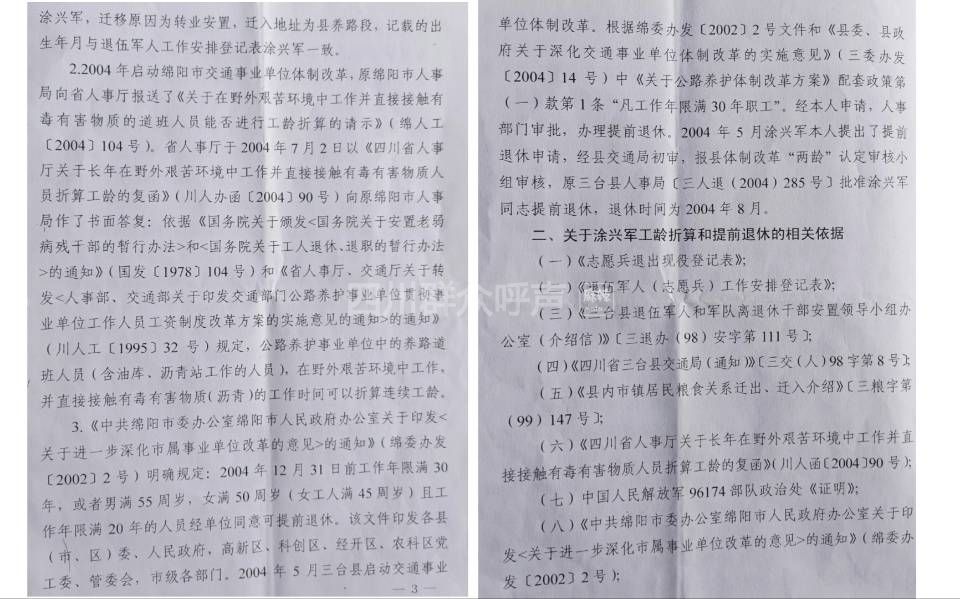 涂兴军，迁移原因为转业安置，迁入地址为县养路段，记载的出
生年月与退伍军人工作安排登记表涂兴军一致。
2.2004年启动绵阳市交通事业单位体制改革，原绵阳市人事
局向省人事厅报送了《关于在野外艰苦环境中工作并直接接触有
毒有害物质的道班人员能否进行工龄折算的请示》（绵人工
〔2004〕104号）。省人事厅于2004年7月2日以《四川省人事
厅关于长年在野外艰苦环境中工作并直接接触有毒有害物质人
员折算工龄的复函》（川人办函〔2004〕90号）向原绵阳市人事
局作了书面答复：依据《国务院关于颁发<国务院关于安置老弱
病残干部的暂行办法>和<国务院关于工人退休、退职的暂行办法
>的通知》（国发〔1978〕104号）和《省人事厅、交通厅关于转
发<人事部、交通部关于印发交通部门公路养护事业单位贯彻事
业单位工作人员工资制度改革方案的实施意见的通知>的通知》
（川人工〔1995〕32号）规定，公路养护事业单位中的养路道
班人员（含油库、沥青站工作的人员），在野外艰苦环境中工作，
并直接接触有毒有害物质（沥青）的工作时间可以折算连续工龄。
3.《中共绵阳市委办公室绵阳市人民政府办公室关于印发<
关于进一步深化市属事业单位改革的意见>的通知》（绵委办发
〔2002〕2号）明确规定：2004年12月31日前工作年限满30
年，或者男满55周岁，女满50周岁（女工人满45周岁）且工
作年限满20年的人员经单位同意可提前退休。该文件印发各县
（市、区）委、人民政府，高新区、科创区、经开区、农科区党
工委、管委会，市级各部门。2004年5月三台县启动交通事业
— 3 —
单位体制改革。根据绵委办发〔2002〕2号文件和《县委、县政
府关于深化交通事业单位体制改革的实施意见》（三委办发
〔2004〕14号）中《关于公路养护体制改革方案》配套政策第
（一）款第1条“凡工作年限满30年职工”。经本人申请，人事
部门审批，办理提前退休。2004年5月涂兴军本人提出了提前
退休申请，经县交通局初审，报县体制改革“两龄”认定审核小
组审核，原三台县人事局〔三人退（2004）285号〕批准涂兴军
同志提前退休，退休时间为2004年8月。
二、关于涂兴军工龄折算和提前退休的相关依据
（一）《志愿兵退出现役登记表》；
（二）《退伍军人（志愿兵）工作安排登记表》；
（三）《三台县退伍军人和军队离退休干部安置领导小组办
公室（介绍信）》〔三退办（98）安字第111号〕；
（四）《四川省三台县交通局（通知）》〔三交（人）98字第8号〕；
（五）《县内市镇居民粮食关系迁出、迁入介绍》〔三粮字第
（99）147号〕；
（六）《四川省人事厅关于长年在野外艰苦环境中工作并直
接接触有毒有害物质人员折算工龄的复函》（川人函〔2004〕90号）；
（七）中国人民解放军96174部队政治处《证明》；
（八）《中共绵阳市委办公室绵阳市人民政府办公室关于印
发<关于进一步深化市属事业单位改革的意见>的通知》（绵委办
发〔2002〕2号）；
群众呼声